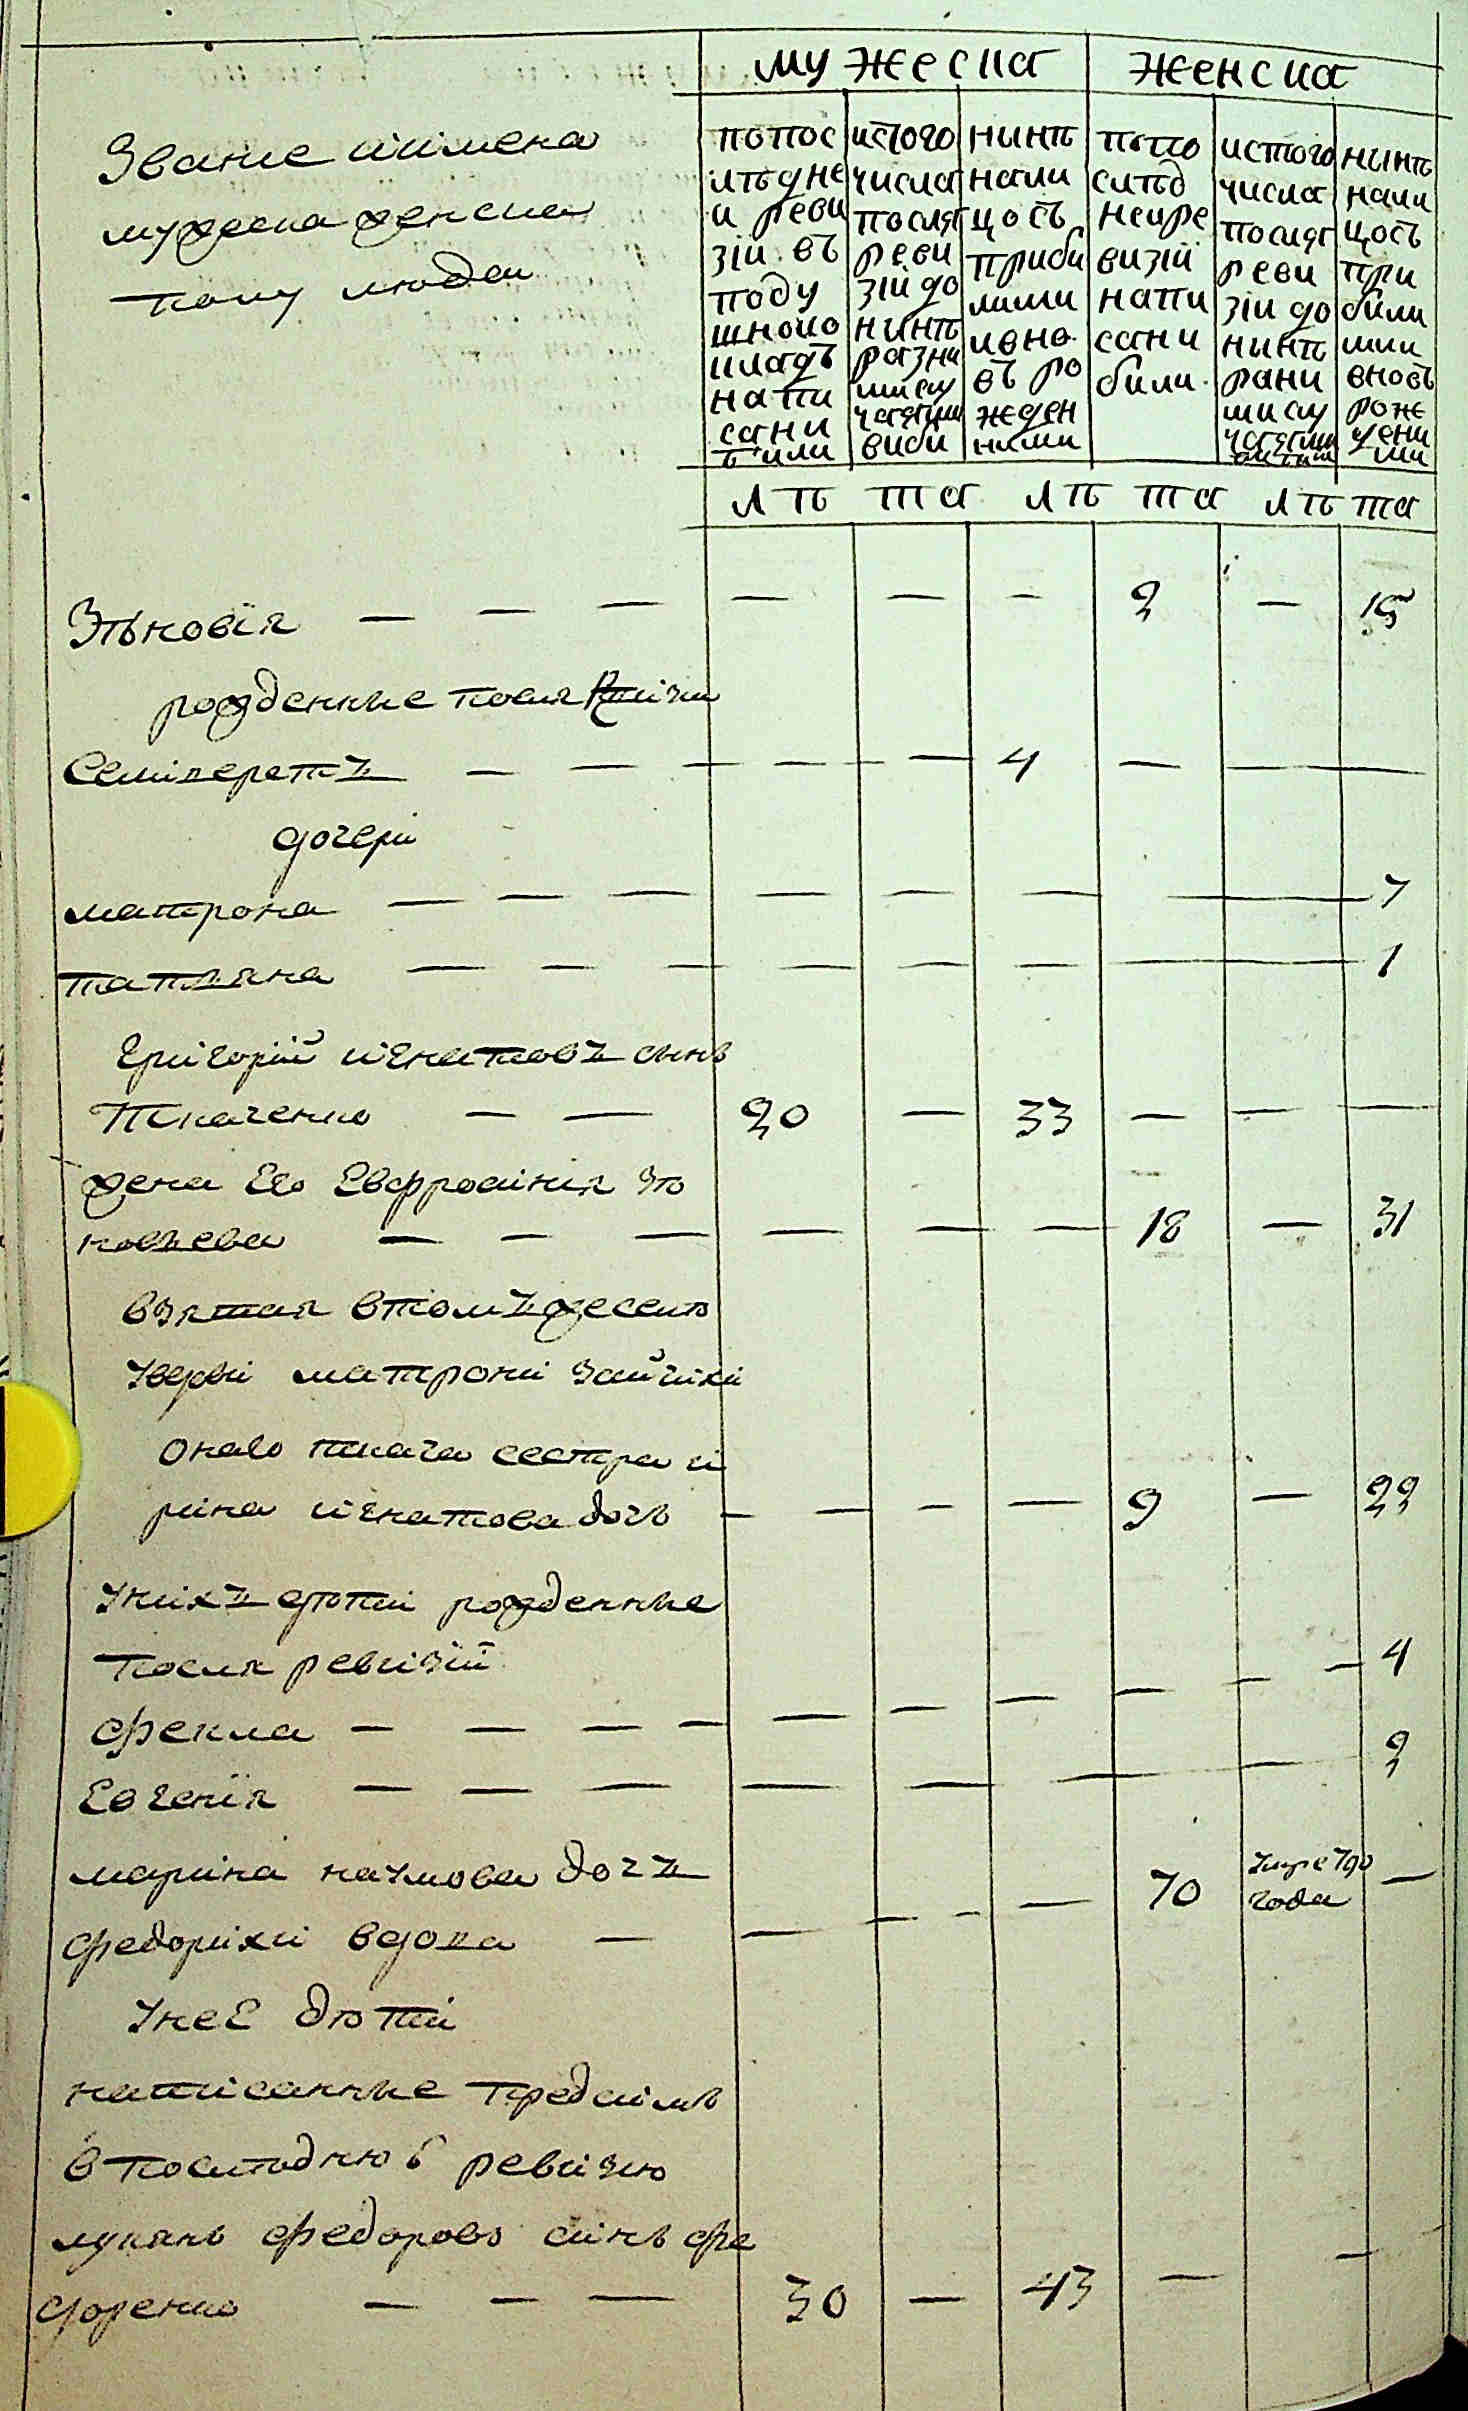 мужеска женска
Звание иимена
мужеска женска
полу людеи
попос
лѣдне
и реви
зіи въ
поду
шною
кладъ
напи
сани
били
истого
числа
посля
реви
зіи до
нинѣ
разни
ми слу
чаями
виби
нынѣ
нали
цость
приби
лими
ивно
въ ро
жеден
ними
попо
слѣд
неире
визіи
напи
сани
били
истого
числа
посля
реви
зіи до
нынѣ
разни
ми слу
чаями
нынѣ
нали
цость
при
били
ми
вновъ
роже
дени
ми
лѣ та лѣ та лѣ та
Зѣновія — — — — — — 2 — 15
рожденные посля Ревізіи
Семіверетъ — — — — 4 — — —
дочери
матрона — — — — — — — — 7
татьяна — — — — — — — — 1
григорій игнатовъ синъ
Ткаченко — — 20 — 33 — — —
жена Его Евфросінія Зѣ
новьева — — — — — — 18 — 31
взятая втомъ же селѣ
Увдовы матрони Зайчихи
Оного ткача сестра и
рина игнатова дочь — — — — 9 — 22
Унихъ дѣти рожденные
посля ревизій
фекла — — — — — — — — — — 4
Евгенія — — — — — — — — 2
марина наумова дочъ
федорихи вдова — — — — — 70 Умре 790 года —
Унее дѣти
написанные предсимъ
в послѣднюю ревизию
лукянъ федоровъ синъ фе
доренко — — — 30 — 43 — —